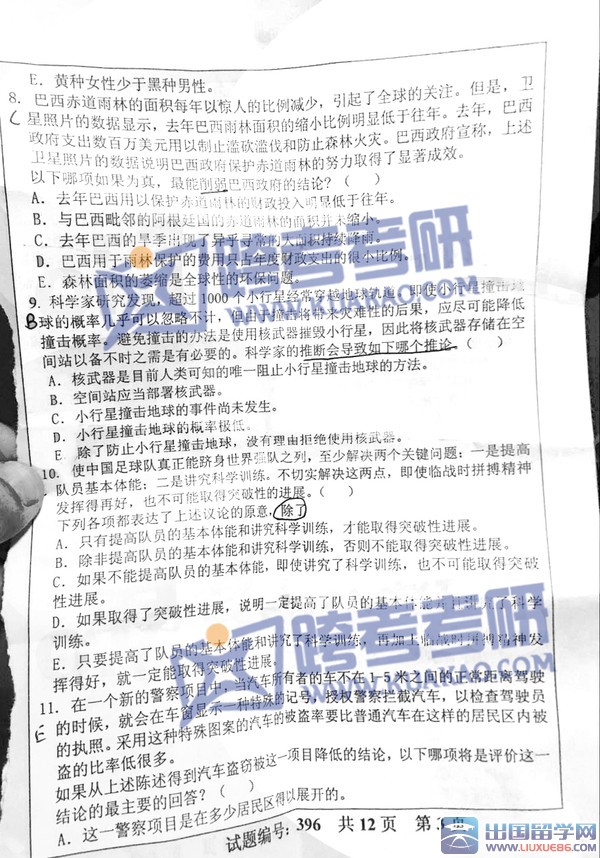 E. 黄种女性少于黑种男性。
8. 巴西赤道雨林的面积每年以惊人的比例减少，引起了全球的关注。但是，卫
C 星照片的数据显示，去年巴西雨林面积的缩小比例明显低于往年。去年，巴西
政府支出数百万美元用以制止滥砍滥伐和防止森林火灾。巴西政府宣称，上述
卫星照片的数据说明巴西政府保护赤道雨林的努力取得了显著成效。
以下哪项如果为真，最能削弱巴西政府的结论？（ ）
A. 去年巴西用以保护赤道雨林的财政投入明显低于往年。
B. 与巴西毗邻的阿根廷国的赤道雨林的面积并未缩小。
C. 去年巴西的旱季出现了异乎寻常的大面积持续降雨。
D. 巴西用于雨林保护的费用只占年度财政支出的很小比例。
E. 森林面积的萎缩是全球性的环保问题。
9. 科学家研究发现，超过 1000 个小行星经常穿越地球轨道，即使小行星撞击地
B 球的概率几乎可以忽略不计，但由于撞击将带来灾难性的后果，应尽可能降低
撞击概率，避免撞击的办法是使用核武器摧毁小行星，因此将核武器存储在空
间站以备不时之需是有必要的。科学家的推断会导致如下哪个推论（ ）
A. 核武器是目前人类可知的唯一阻止小行星撞击地球的方法。
B. 空间站应当部署核武器。
C. 小行星撞击地球的事件尚未发生。
D. 小行星撞击地球的概率极低。
E. 除了防止小行星撞击地球，没有理由拒绝使用核武器。
10. 使中国足球队真正能跻身世界强队之列，至少解决两个关键问题：一是提高
队员基本体能；二是讲究科学训练。不切实解决这两点，即使临战时拼搏精神
发挥得再好，也不可能取得突破性的进展。（ ）
下列各项都表达了上述议论的原意，除了
A. 只有提高队员的基本体能和讲究科学训练，才能取得突破性进展。
B. 除非提高队员的基本体能和讲究科学训练，否则不能取得突破性进展。
C. 如果不能提高队员的基本体能，即使讲究了科学训练，也不可能取得突破
性进展。
D. 如果取得了突破性进展，说明一定提高了队员的基本体能并且讲究了科学
训练。
E. 只要提高了队员的基本体能和讲究了科学训练，再加上临战时拼搏精神发
挥得好，就一定能取得突破性进展。
11. 在一个新的警察项目中，当汽车所有者的车不在 1-5 米之间的正常距离驾驶
E 的时候，就会在车窗显示一种特殊的记号，授权警察拦截汽车，以检查驾驶员
的执照。采用这种特殊图案的汽车的被盗率要比普通汽车在这样的居民区内被
盗的比率低很多。
如果从上述陈述得到汽车盗窃被这一项目降低的结论，以下哪项将是评价这一
结论的最主要的回答？（ ）
A. 这一警察项目是在多少居民区得以展开的。
试题编号：396 共 12 页 第 3 页
跨考考研
跨考考研
KUAKAO.COM
出国留学网
LIUXUE86.COM